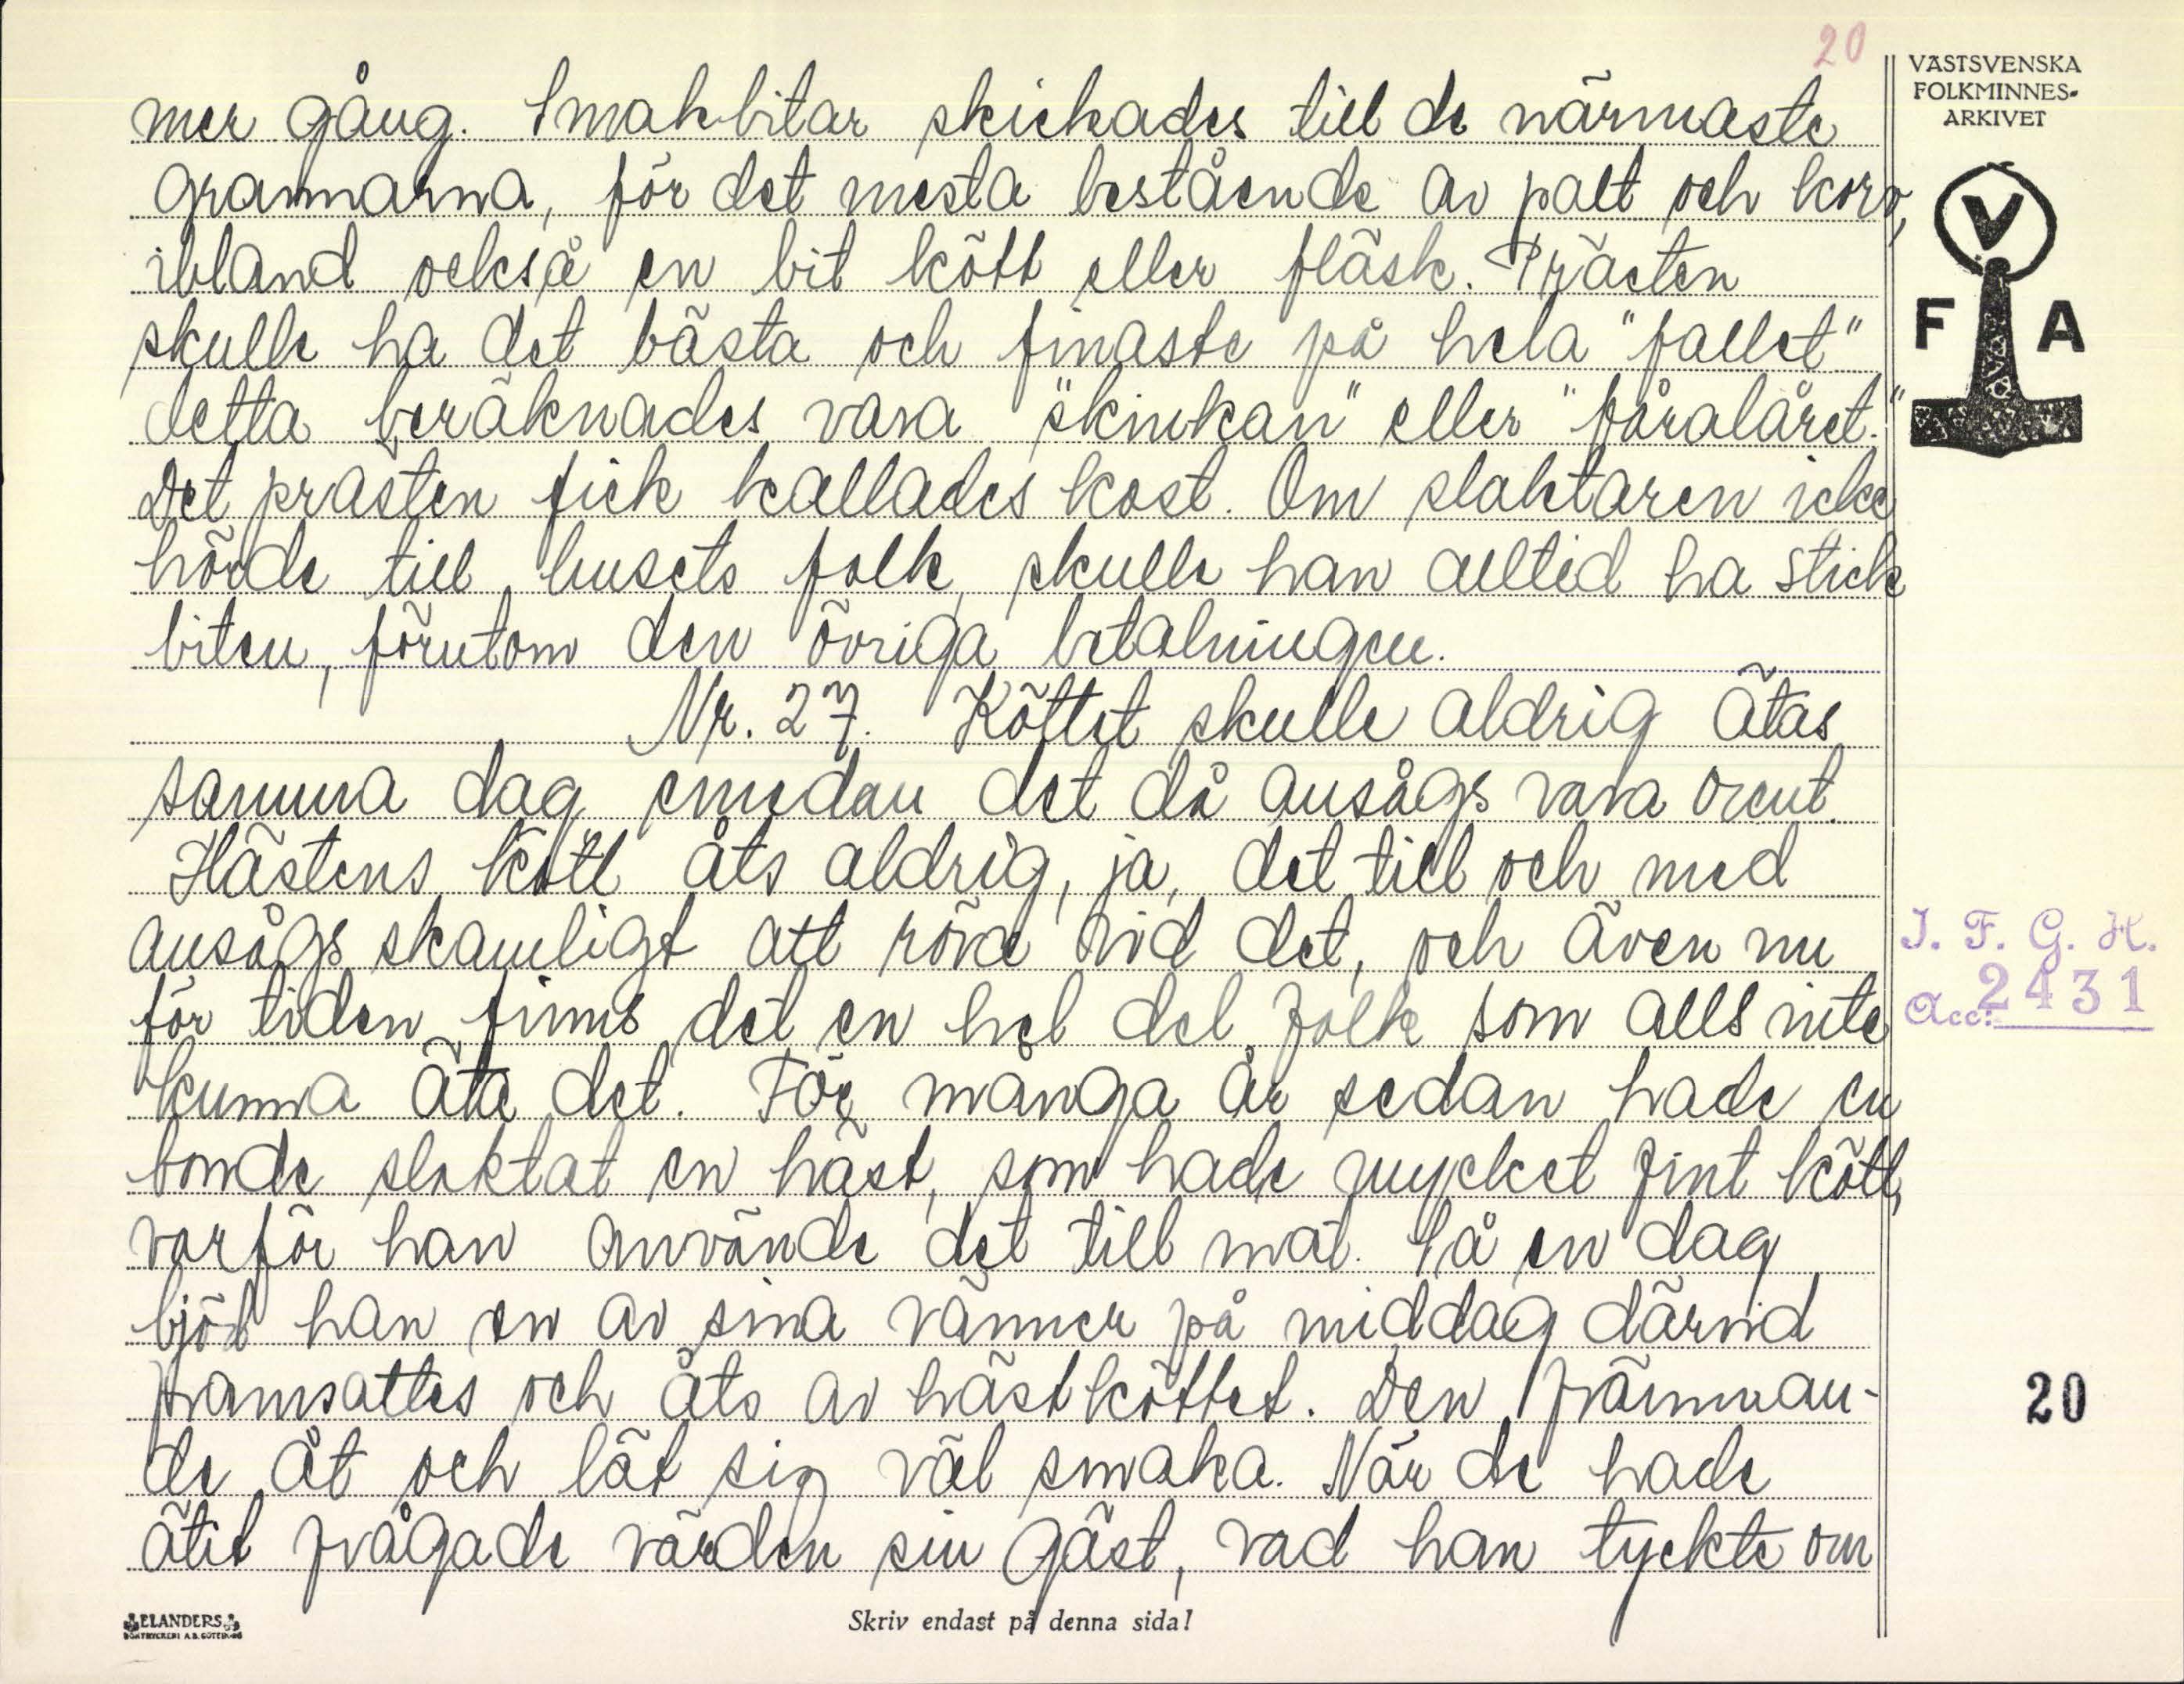 20
VÄSTSVENSKA
FOLKMINNES-
ARKIVET
V
F A
mer gång. Smakbitar skickades till de närmaste
grannarna, för det mesta bestående av palt och korv,
ibland också en bit kött eller fläsk. Prästen
skulle ha det bästa och finaste på hela "fallet"
detta beräknades vara "skinkan" eller "fåralåret."
Det prästen fick kallades kost. Om slaktaren icke
hörde till husets folk, skulle han alltid ha stick
biten, förutom den övriga betalningen.
Nr. 27. Köttet skulle aldrig ätas
samma dag emedan det då ansågs vara orent.
Hästens kött åts aldrig, ja, det till och med
ansågs skamligt att röra vid det, och även nu
för tiden finns det en hel del folk som alls inte
kunna äta det. För många år sedan hade en
bonde slaktat en häst, som hade mycket fint kött,
varför han använde det till mat. Så en dag
bjöd han en av sina vänner på middag därvid
framsattes och åts av hästköttet. Den främman-
de åt och lät sig väl smaka. När de hade
ätit frågade värden sin gäst, vad han tyckte om
I. F. G. H.
Acc: 2431
20
ELANDERS
BOKTRYCKERI A.B. GÖTEBORG
Skriv endast på denna sida!